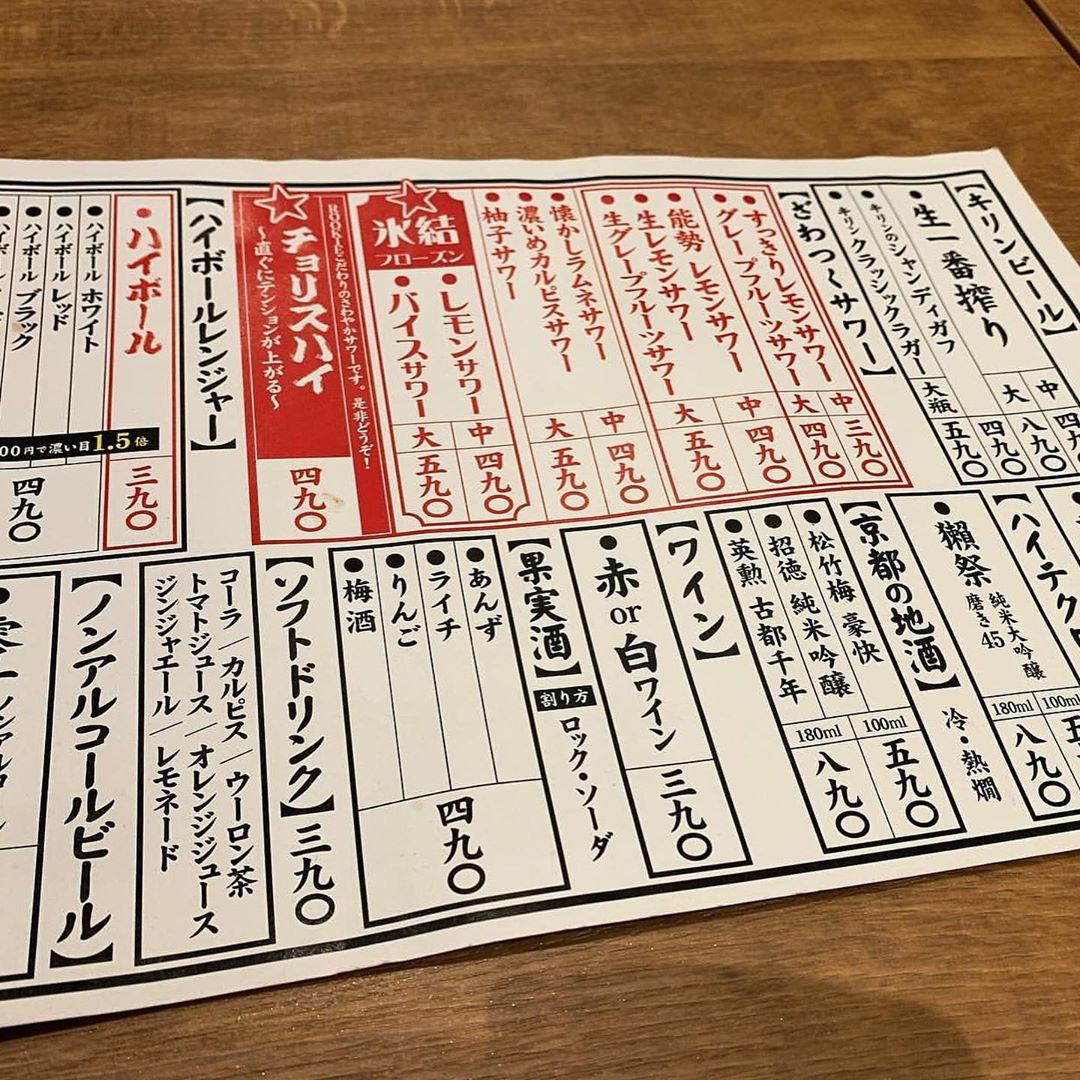 【キリンビール】
●生一番搾り
中
四九〇
大
八九〇
●キリンのシャンディガフ
四九〇
●キリンクラッシックラガー 大瓶
五九〇
【ざわつくサワー】
●すっきりレモンサワー
●グレープフルーツサワー
中
三九〇
大
四九〇
●能勢 レモンサワー
●生レモンサワー
●生グレープフルーツサワー
中
四九〇
大
五九〇
●懐かしラムネサワー
●濃いめカルピスサワー
●柚子サワー
中
四九〇
大
五九〇
氷結
フローズン
●レモンサワー
●バイスサワー
中
四九〇
大
五九〇
ROOKIEこだわりのさわやかサワーです。是非どうぞ！
チョリスハイ
〜直ぐにテンションが上がる〜
四九〇
【ハイボールレンジャー】
●ハイボール
三九〇
●ハイボール ホワイト
●ハイボール レッド
●ハイボール ブラック
00円で濃い目1.5倍
四九〇
【ハイテク
●獺祭 純米大吟醸
磨き45
100ml
180ml
八九〇
冷・熱燗
【京都の地酒】
●松竹梅 豪快
●招徳 純米吟醸
●英勲 古都千年
100ml
五九〇
180ml
八九〇
【ワイン】
●赤or白ワイン
三九〇
【果実酒】
割り方
ロック・ソーダ
●あんず
●ライチ
●りんご
●梅酒
四九〇
【ソフトドリンク】三九〇
コーラ／カルピス／ウーロン茶
トマトジュース／オレンジジュース
ジンジャエール／レモネード
【ノンアルコールビール】